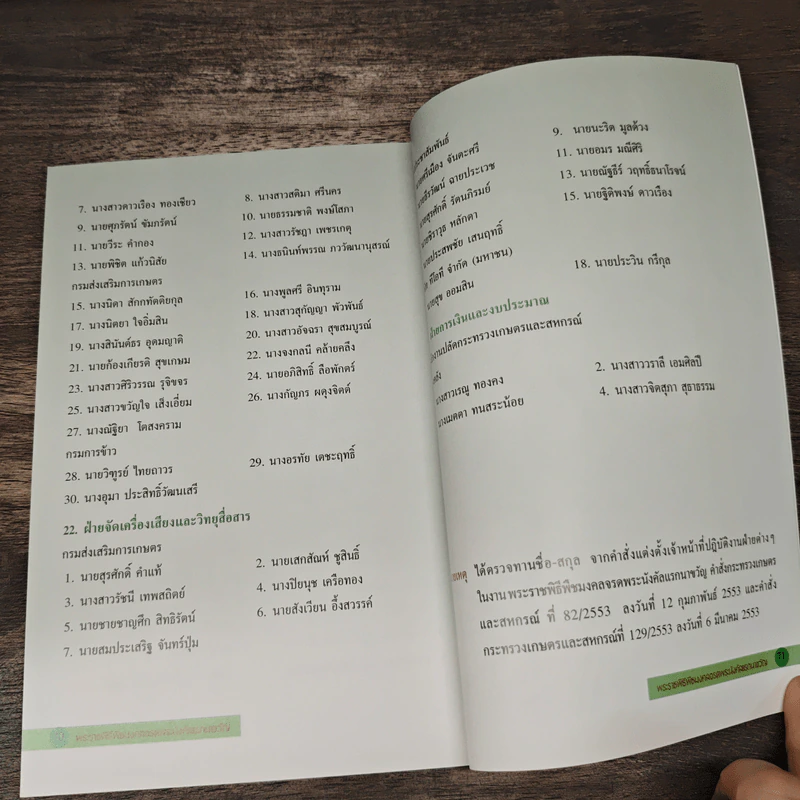 7. นางสาวดาวเรือง ทองเขียว
8. นางสาวสติมา ศรีนคร
9. นายศุภรัตน์ ชัมภรัตน์
10. นายธรรมชาติ พงษ์โสภา
11. นายวีระ คำกอง
12. นางสาวรัชฎา เพชรเกตุ
13. นายพิชิต แก้วนิสัย
14. นางธนินท์พรรณ ภววัฒนานุสรณ์
กรมส่งเสริมการเกษตร
15. นางนิดา สักกทัตติยกุล
16. นางพูลศรี อินทุราม
17. นางนิตยา ใจอิ่มสิน
18. นางสาวสุกัญญา พัวพันธ์
19. นางสินันต์ธร อุดมญาติ
20. นางสาวอัจฉรา สุขสมบูรณ์
21. นายก้องเกียรติ สุขเกษม
22. นางจงกลนี คล้ายคลึง
23. นางสาวศิริวรรณ รุจิขจร
24. นายอภิสิทธิ์ ลือพักตร์
25. นางสาวขวัญใจ เส็งเอี่ยม
26. นางกัญภร ผดุงจิตต์
27. นางณัฐิยา โตสงคราม
กรมการข้าว
28. นายวิฑูรย์ ไทยถาวร
29. นางอรทัย เดชะฤทธิ์
30. นางอุมา ประสิทธิ์วัฒนเสรี
22. ฝ่ายจัดเครื่องเสียงและวิทยุสื่อสาร
กรมส่งเสริมการเกษตร
1. นายสุรศักดิ์ คำแท้
2. นายเสกสัณห์ ชูสินธิ์
3. นางสาวรัชนี เทพสถิตย์
4. นางปิยนุช เครือทอง
5. นายชายชาญศึก สิทธิรัตน์
6. นายสังเวียน อึ้งสวรรค์
7. นายสมประเสริฐ จันทร์ปุ่ม
พระราชพิธีพืชมงคลจรดพระนังคัลแรกนาขวัญ
ประชาสัมพันธ์
9. นายนะริต มูลด้วง
นายศรีเมือง จันตะศรี
11. นายอมร มณีศิริ
ธีรวัฒน์ ฉายประเวช
13. นายณัฐธีร์ วฤทธิ์ธนาโรจน์
นายสุรศักดิ์ รัตนภิรมย์
15. นายฐิติพงษ์ ดาวเรือง
นายจิราวุธ หลักดา
นายประสพชัย เสนฤทธิ์
ทีโอที จำกัด (มหาชน)
นายสุข ออมสิน
18. นายประวิน กรีกุล
ฝ่ายการเงินและงบประมาณ
งานปลัดกระทรวงเกษตรและสหกรณ์
นางสาวเรณู ทองคง
2. นางสาววราลี เอมศิลปี
นางเมตตา ทนสระน้อย
4. นางสาวจิตสุภา สุธาธรรม
เหตุ ได้ตรวจทานชื่อ-สกุล จากคำสั่งแต่งตั้งเจ้าหน้าที่ปฏิบัติงานฝ่ายต่างๆ
ในงาน พระราชพิธีพืชมงคลจรดพระนังคัลแรกนาขวัญ คำสั่งกระทรวงเกษตร
และสหกรณ์ ที่ 82/2553 ลงวันที่ 12 กุมภาพันธ์ 2553 และคำสั่ง
กระทรวงเกษตรและสหกรณ์ที่ 129/2553 ลงวันที่ 6 มีนาคม 2553
พระราชพิธีพืชมงคลจรดพระนังคัลแรกนาขวัญ 71